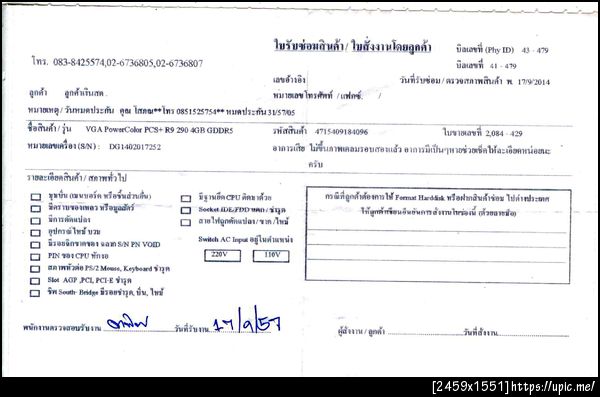 ใบรับซ่อมสินค้า / ใบสั่งงานโดยลูกค้า
บิลเลขที่ (Phy ID) 43 - 479
บิลเลขที่ 41 - 479
โทร. 083-8425574,02-6736805,02-6736807
เลขอ้างอิง
วันที่รับซ่อม / ตรวจสภาพสินค้า พ. 17/9/2014
ลูกค้า ลูกค้าเงินสด.
หมายเลขโทรศัพท์ / แฟกซ์. /
หมายเหตุ / วันหมดประกัน คุณ โสภณ**โทร 0851525754** หมดประกัน 31/57/05
ชื่อสินค้า / รุ่น VGA PowerColor PCS+ R9 290 4GB GDDR5
รหัสสินค้า 4715409184096
ใบขายเลขที่ 2,084 - 429
หมายเลขเครื่อง (S/N) : DG1402017252
อาการเสีย ไม่ขึ้นภาพเคลมรอบสองแล้ว อาการมีเป็นๆหายช่วยเช็คให้ละเอียดหน่อยนะครับ
รายละเอียดสินค้า / สภาพทั่วไป
ขุบบิ่น (บนบอร์ด หรือชิ้นส่วนอื่น)
มีคราบของเหลว หรือมูลสัตว์
มีการดัดแปลง
อุปกรณ์ ไหม้ บวม
มีรอยฉีกขาดของ ฉลาก S/N PN VOID
PIN ของ CPU หักงอ
สภาพหัวต่อ PS/2 Mouse, Keyboard ชำรุด
Slot AGP ,PCI, PCI-E ชำรุด
ชิพ South- Bridge มีรอยชำรุด, บิ่น, ไหม้
มีฐานยึด CPU ติดมาด้วย
Socket IDE/FDD แตก / ชำรุด
สายไฟถูกดัดแปลง / ขาด /ไหม้
Switch AC Input อยู่ในตำแหน่ง
220V 110V
กรณีที่ลูกค้าต้องการให้ Format Harddisk หรือฝากสินค้าซ่อม ไปต่างประเทศ
ให้ลูกค้าเขียนยืนยันการสั่งงานในช่องนี้ (ด้วยลายมือ)
พนักงานตรวจสอบรับงาน
วันที่รับงาน 17/9/57
ผู้สั่งงาน / ลูกค้า
วันที่สั่งงาน
[2459x1551]https://upic.me/